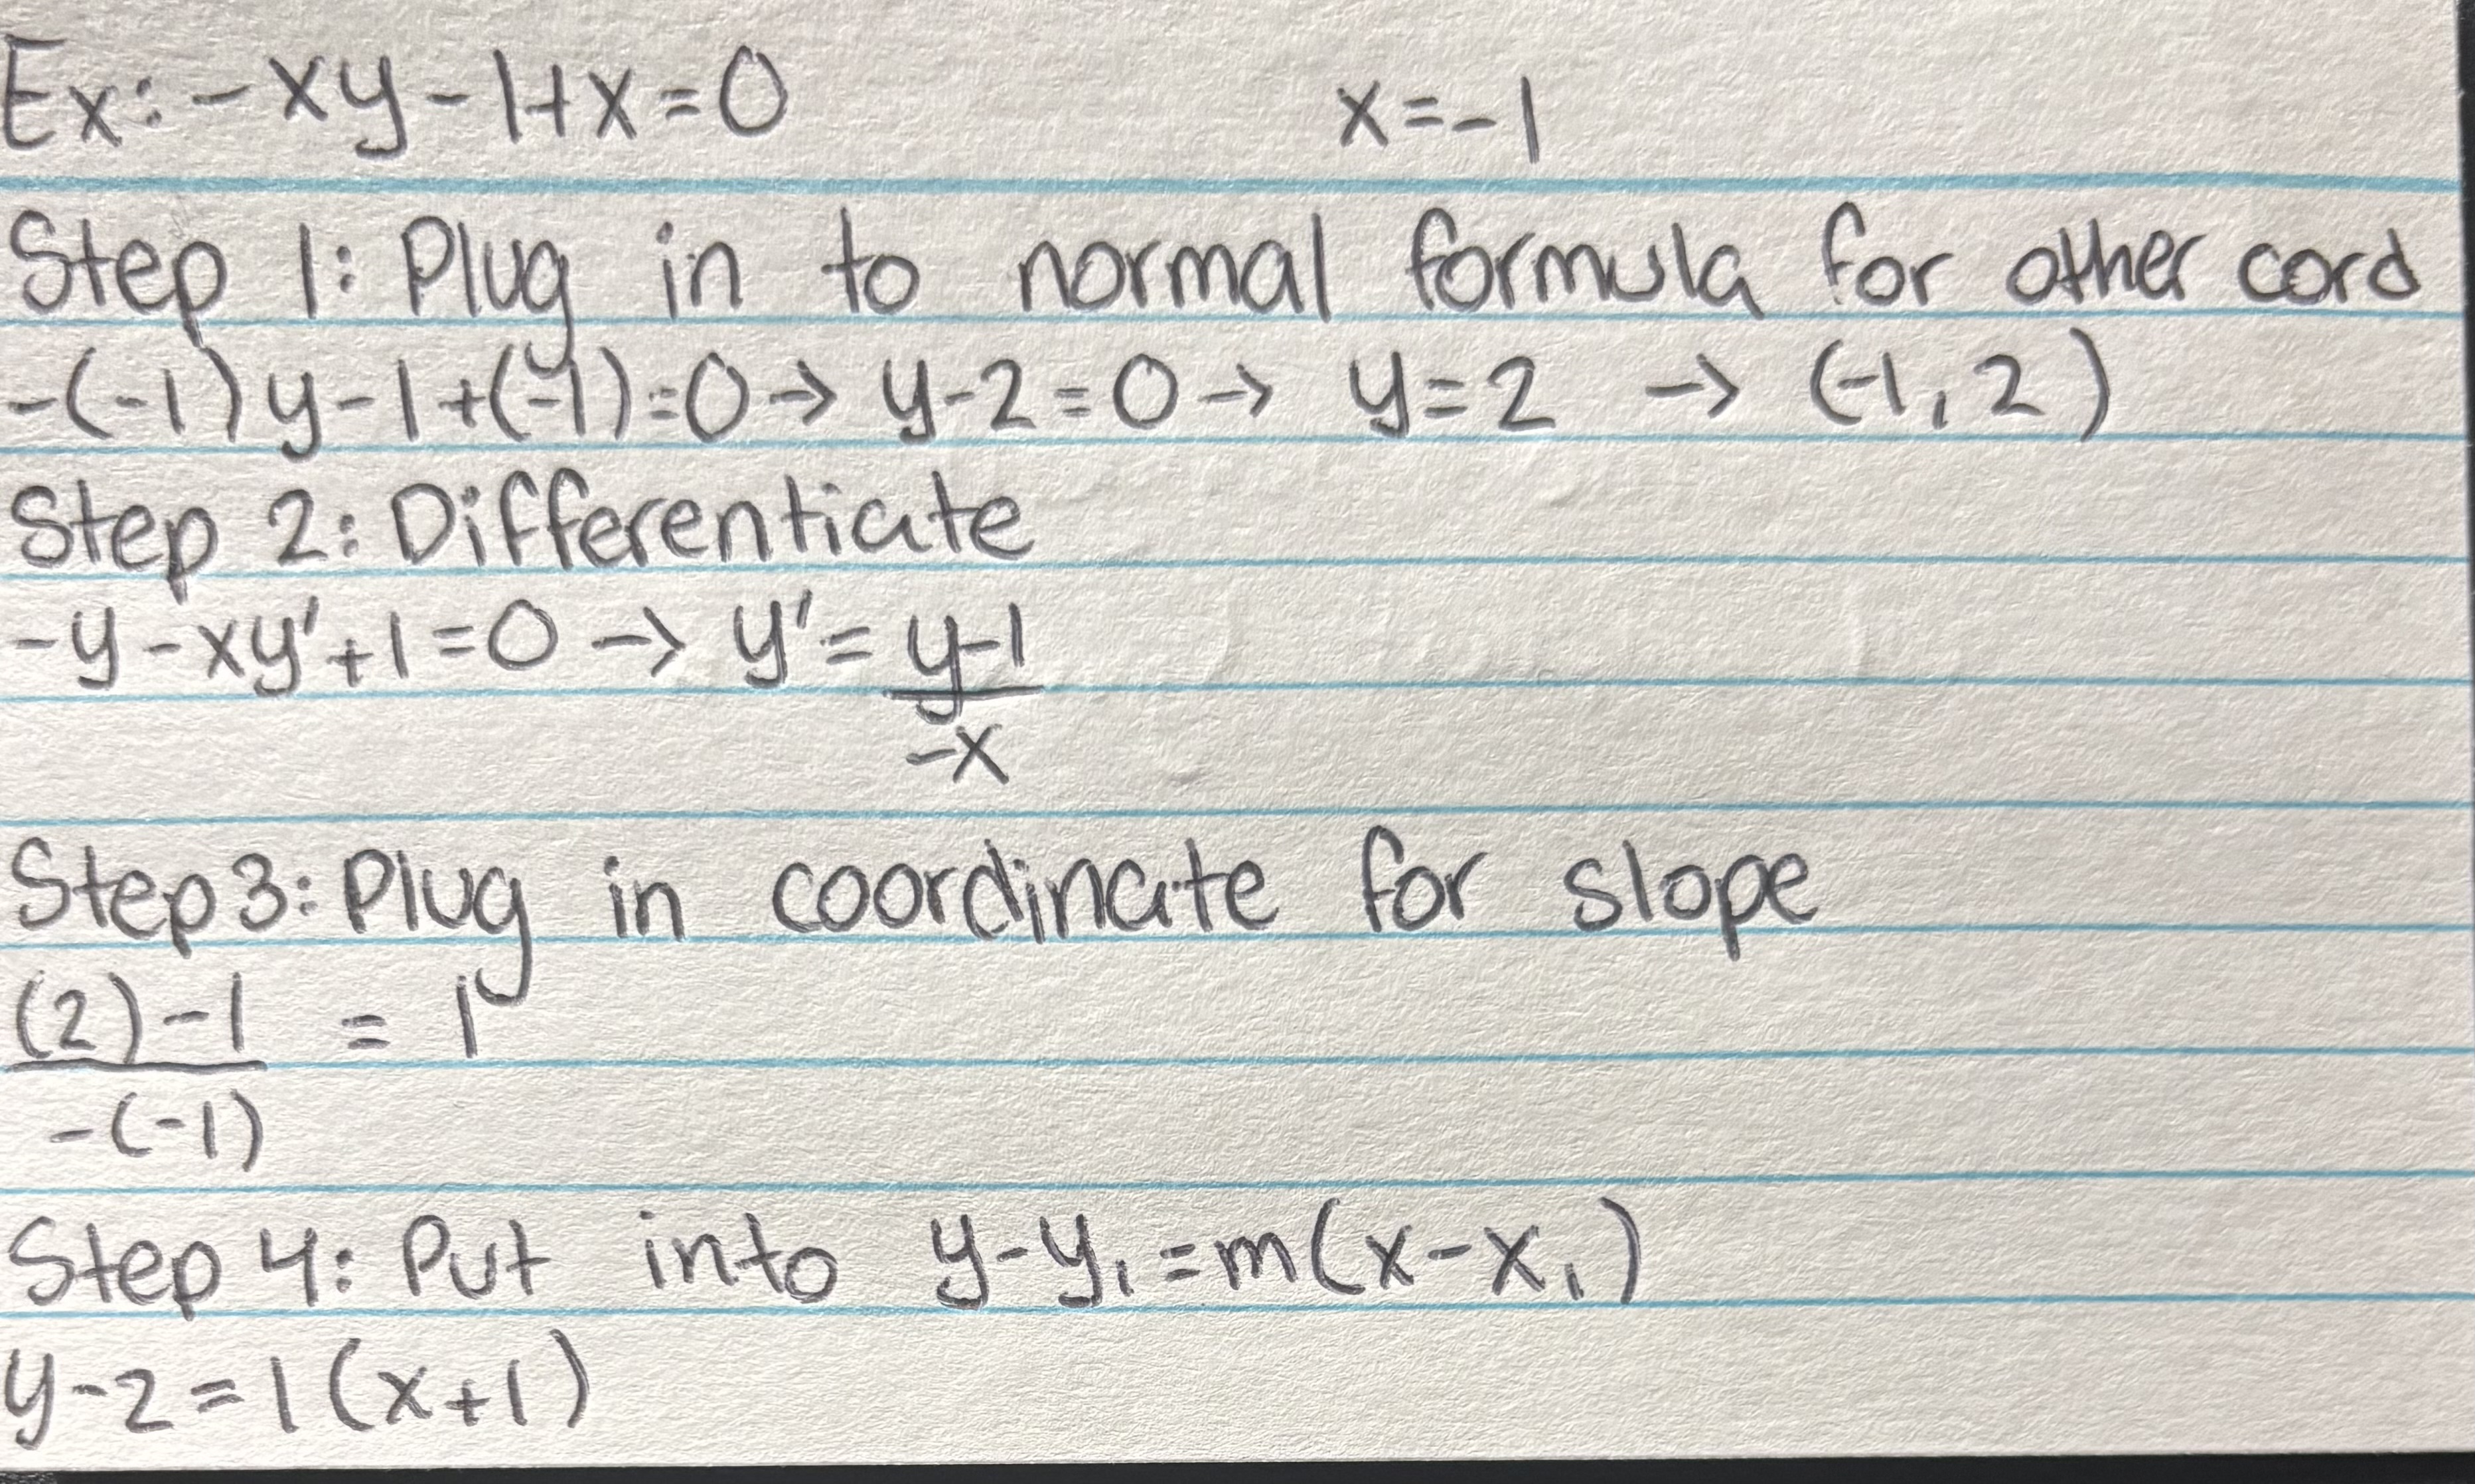 Ex: -xy-1+x=0 x=-1
Step 1: Plug in to normal formula for other cord
-(-1)y-1+(-1)=0→ y-2=0→ y=2 → (-1,2)
Step 2: Differentiate
-y-xy'+1=0→ y'= y-1
-x
Step 3: Plug in coordinate for slope
(2)-1 = 1
-(-1)
Step 4: Put into y-y₁=m(x-x₁)
y-2=1(x+1)